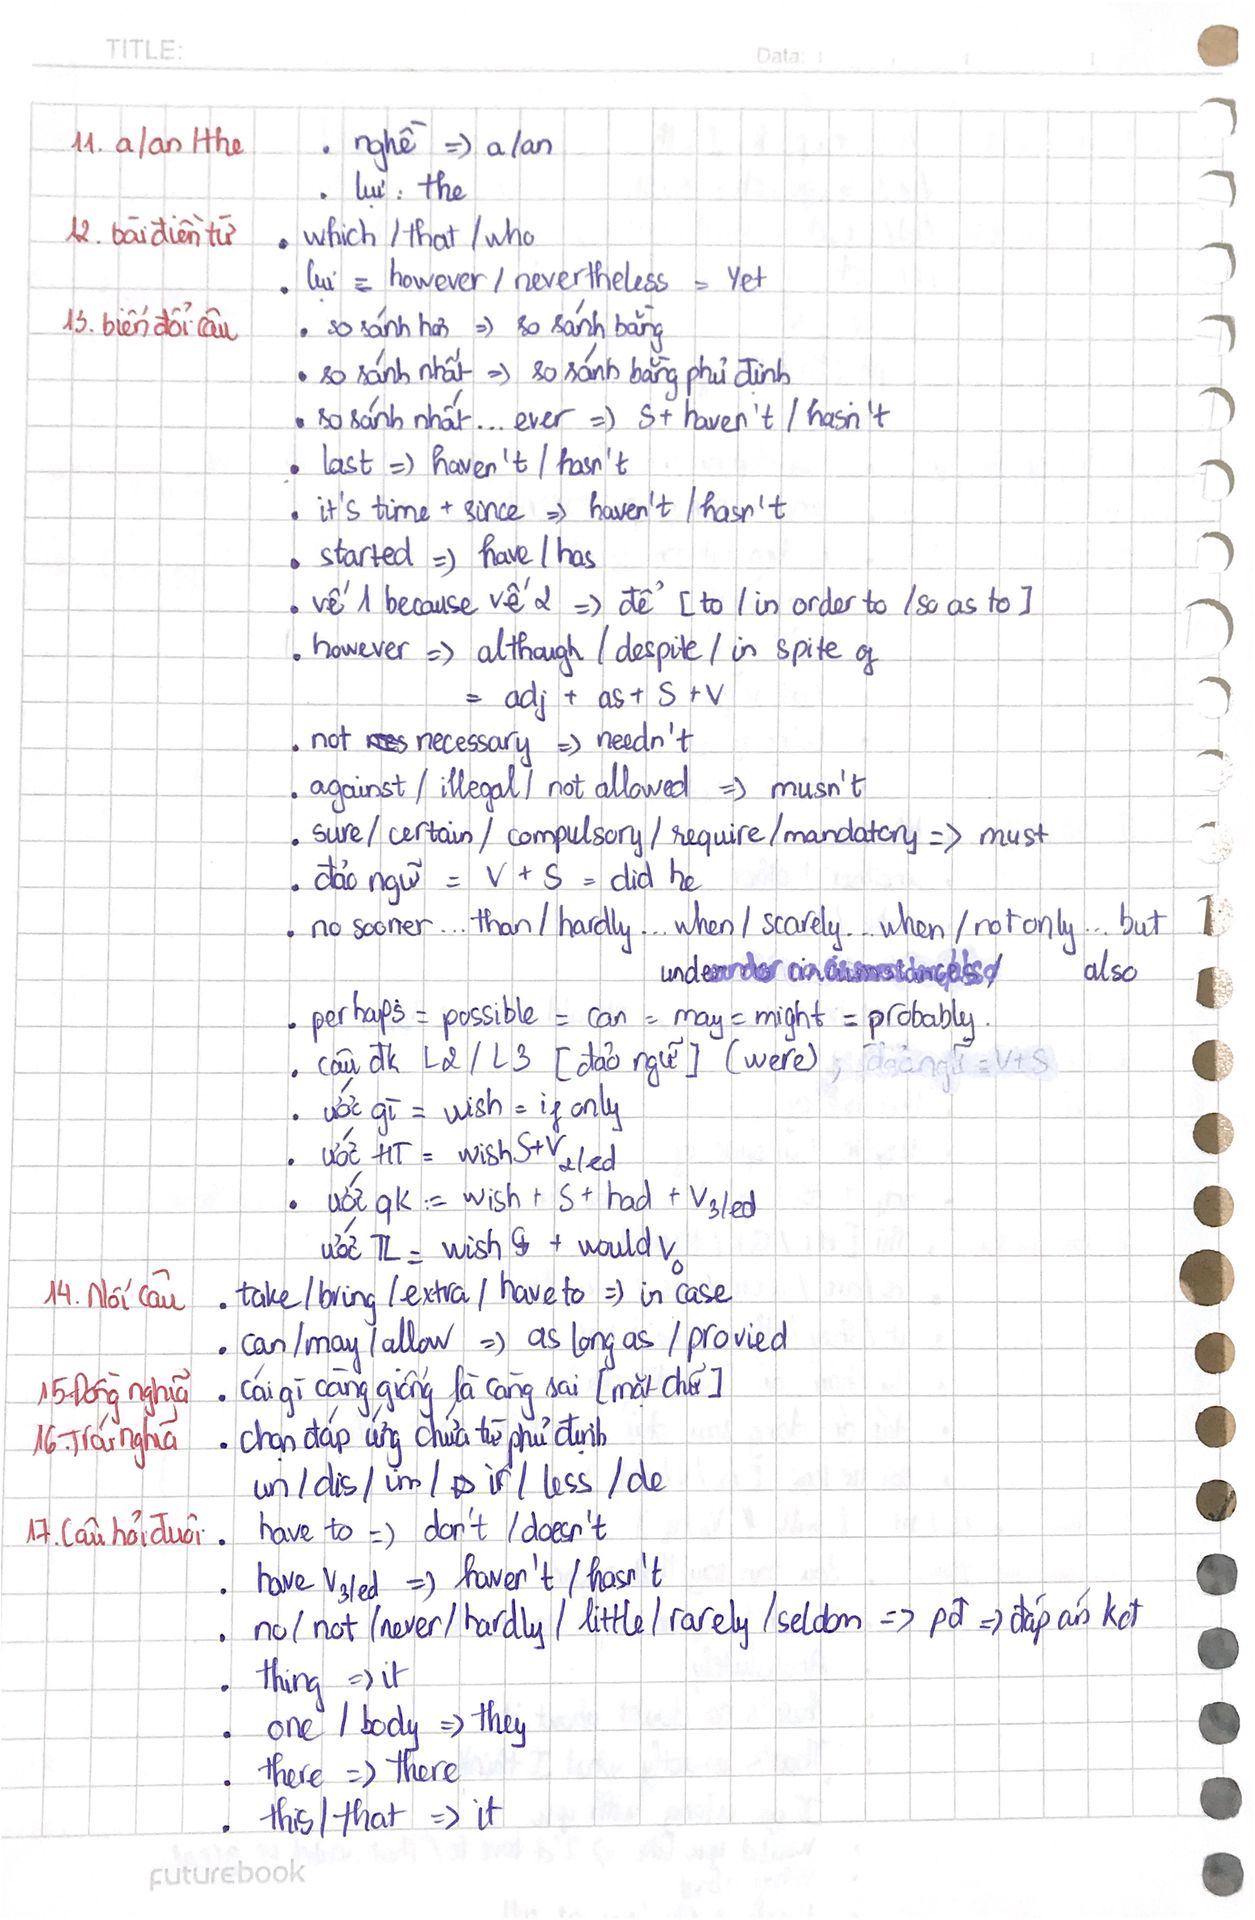 TITLE:
Data:
11. a/an/the . nghề => a/an
. lụi : the
12. bài điền từ . which / that / who
. lụi = however / nevertheless = Yet
13. biến đổi câu . so sánh hơn => so sánh bằng
. so sánh nhất => so sánh bằng phủ định
. so sánh nhất ... ever => S + haven't / hasn't
. last => haven't / hasn't
. it's time + since => haven't / hasn't
. started => have / has
. vế 1 because vế 2 => để [to / in order to / so as to]
. however => although / despite / in spite of
= adj + as + S + V
. not necessary => needn't
. against / illegal / not allowed => musn't
. sure / certain / compulsory / require / mandatory => must
. đảo ngữ = V + S = did he
. no sooner ... than / hardly ... when / scarely ... when / not only ... but
also
. perhaps = possible = can = may = might = probably.
. câu đk L2 / L3 [đảo ngữ] (were) ; đảo ngữ = V + S
. ước gì = wish = if only
. ước HT = wish S + V2/ed
. ước qk := wish + S + had + V3/ed
ước TL = wish S + would V0
14. Nối câu . take / bring / extra / have to => in case
. can / may / allow => as long as / provied
15. Đồng nghĩa . cái gì càng giống là càng sai [mặt chữ]
16. Trái nghĩa . chọn đáp ứng chứa từ phủ định
un / dis / im / ir / less / de
17. Câu hỏi đuôi . have to => don't / doesn't
. have V3/ed => haven't / hasn't
. no / not / never / hardly / little / rarely / seldom => pđ => đáp án kđ
. thing => it
. one / body => they
. there => there
. this / that => it
FUTUREBOOK